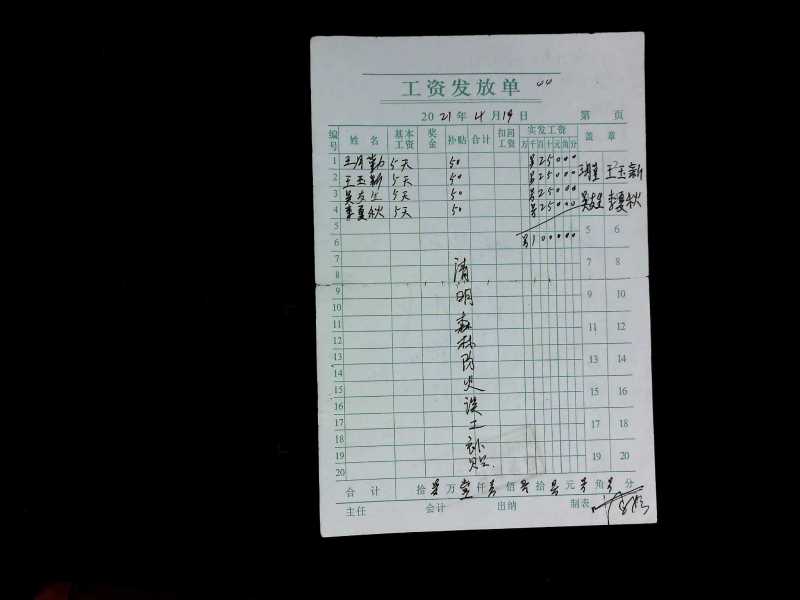 工资发放单
2021年4月19日 第 页
编号 姓名 基本工资 奖金 补贴 合计 扣同工资 实发工资 盖章
万 千 百 十 元 角 分
1 王月勤 5天 50 ¥25000
2 王玉新 5天 50 ¥25000 王玉新
3 吴友生 5天 50 ¥25000
4 李夏秋 5天 50 ¥25000 吴友生 李夏秋
5 5 6
6 ¥100000
7 7 8
8
9 9 10
10
11 11 12
12
13 13 14
14
15 15 16
16
17 17 18
18
19 19 20
20
清明森林防火误工补贴
合计 拾 万 壹 仟 佰 拾 元 角 分
主任 会计 出纳 制表